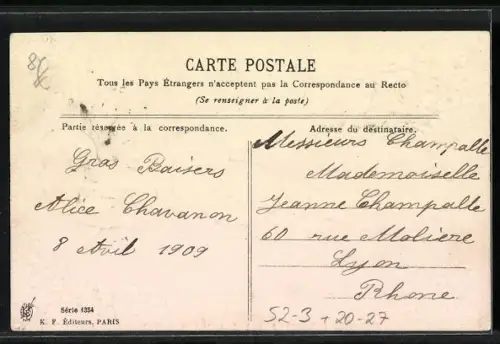 CARTE POSTALE
Tous les Pays Étrangers n'acceptent pas la Correspondance au Recto
(Se renseigner à la poste)
Partie réservée à la correspondance.
Gros Baisers
Alice Chavanon
8 Avil 1909
Série 1354
K. F. Éditeurs, PARIS
Adresse du destinataire.
Messieurs Champalle
Mademoiselle
Jeanne Champalle
60 rue Molière
Lyon
Rhone
52-3 + 20-27